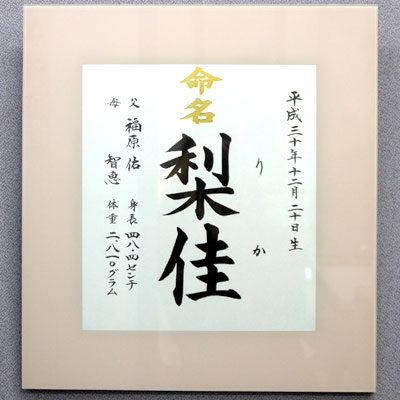 平成三十年十二月二十日生
命名
梨佳
りか
父 福原 佑 身長 四八・四センチ
母 智恵 体重 二、八一〇グラム